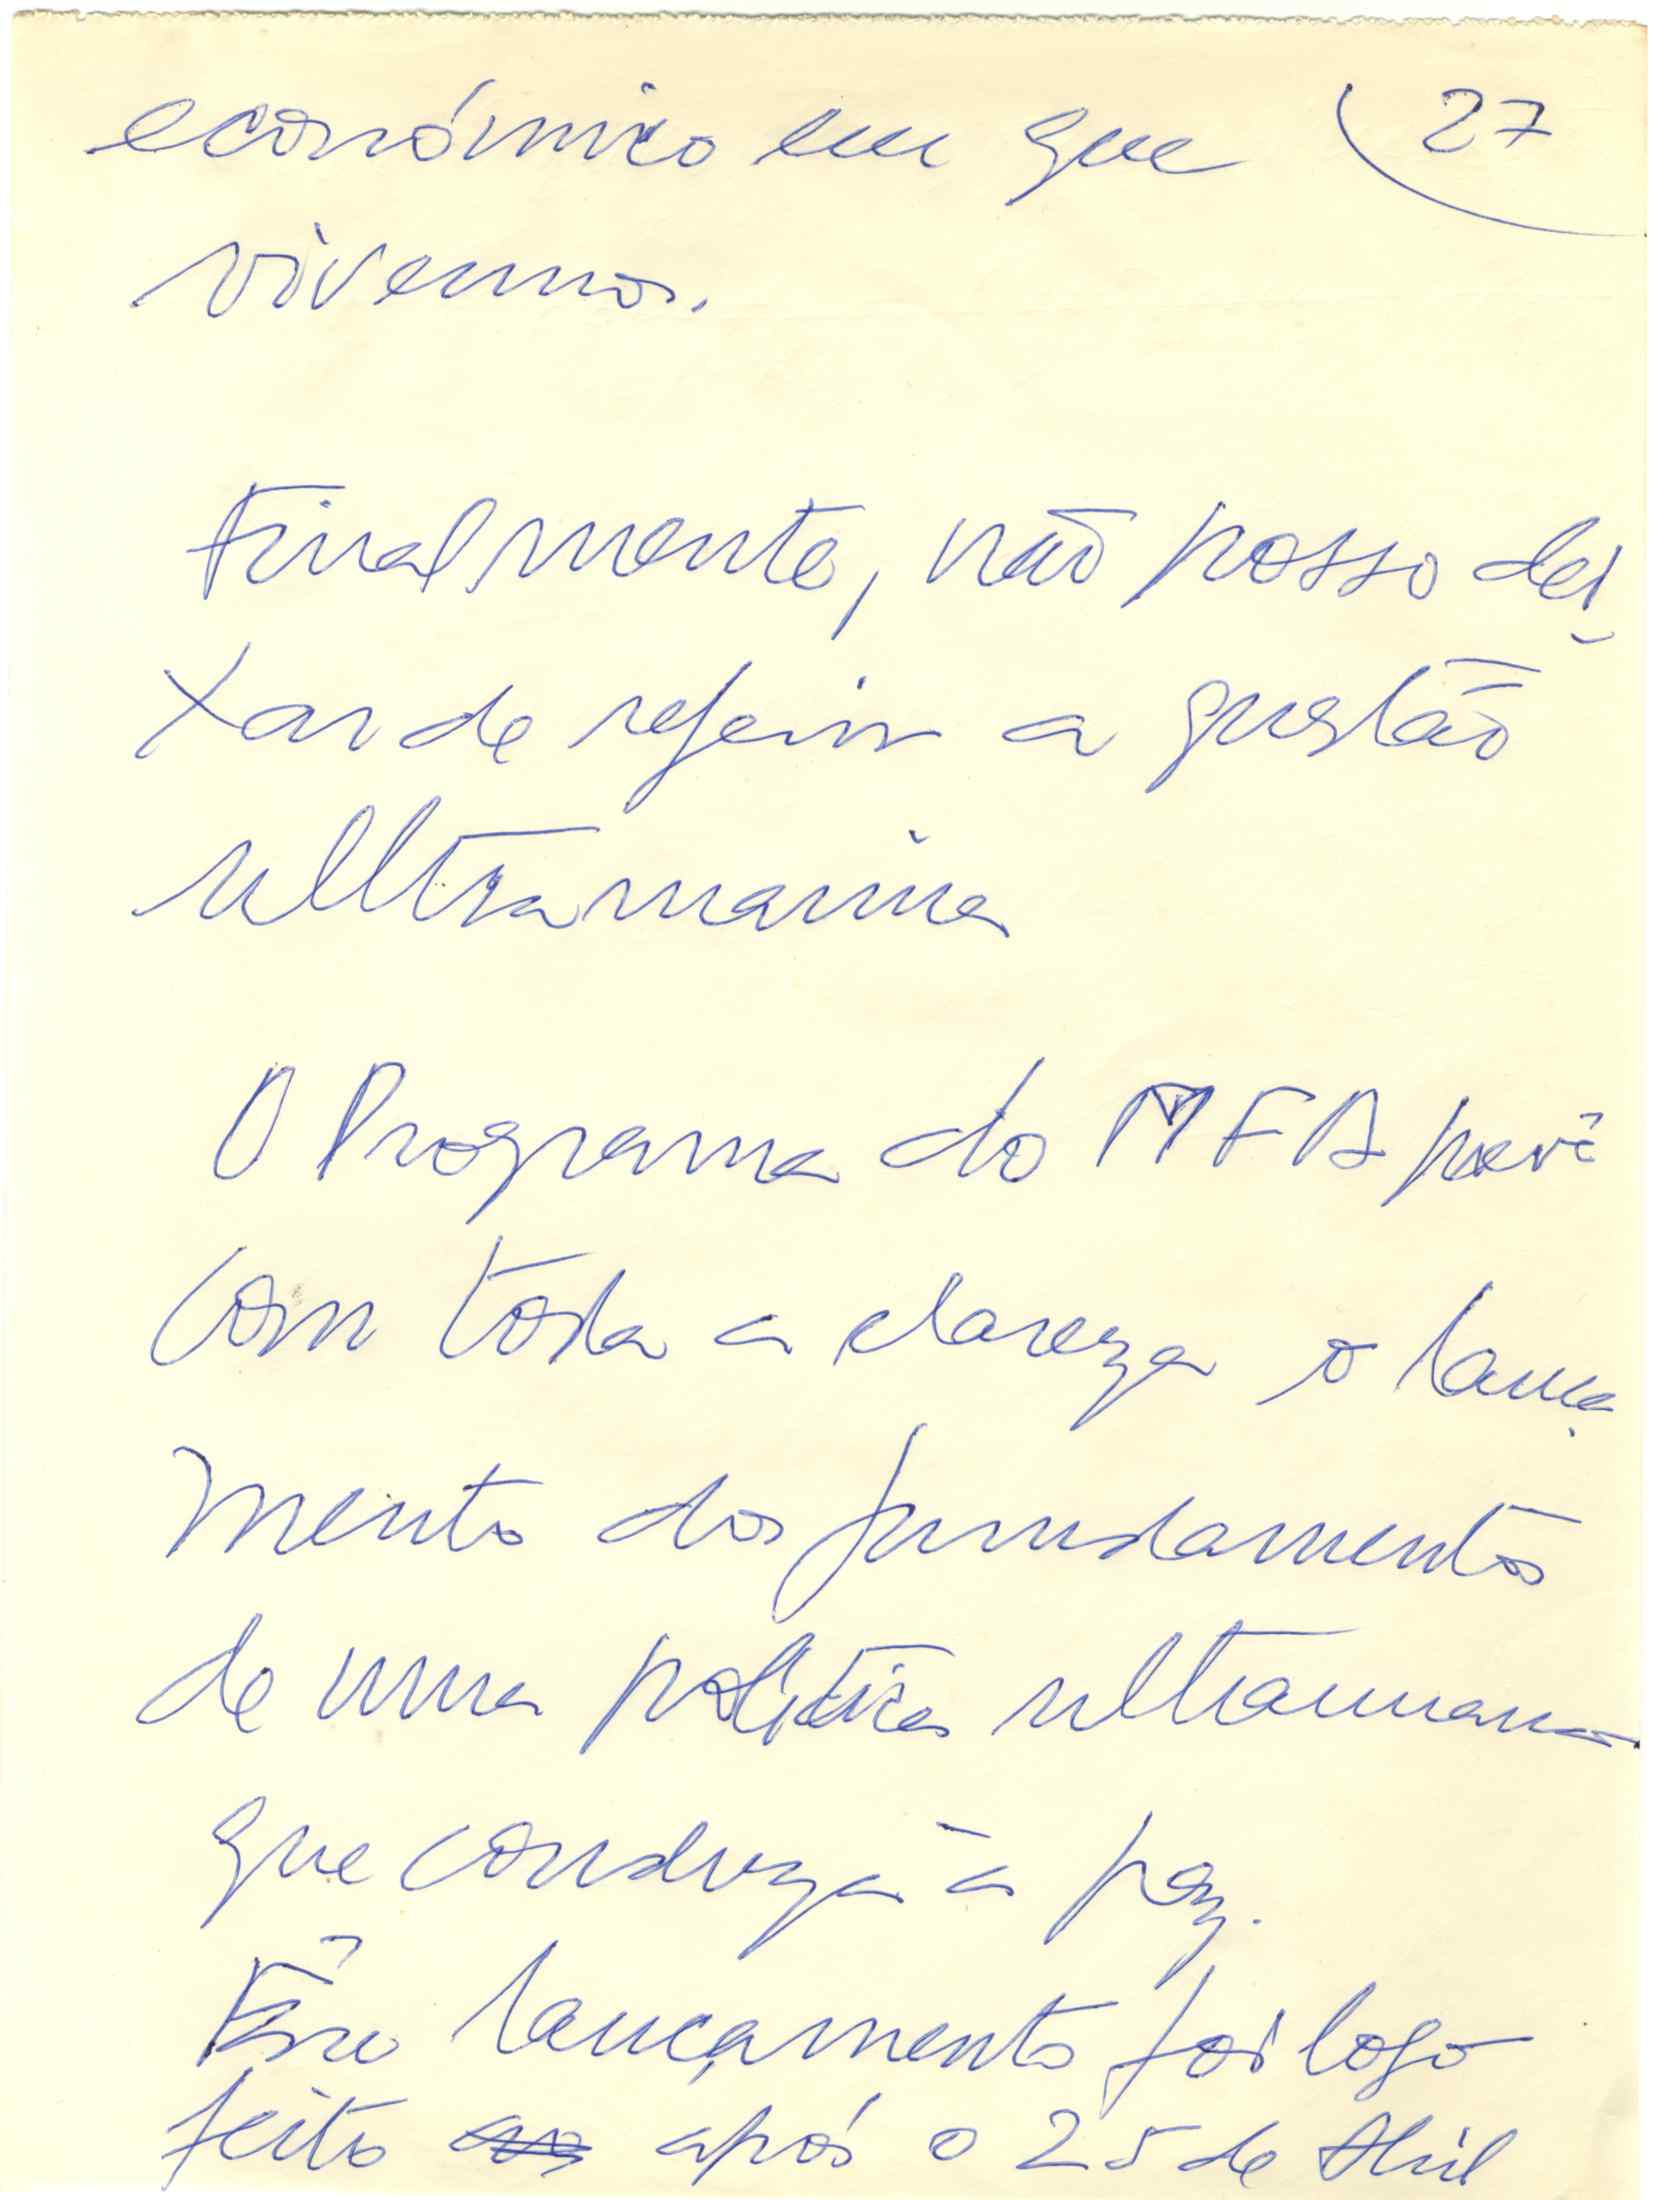 económico em que 27
vivemos.
Finalmente, não posso dei-
xar de referir a questão
ulltramarina
O Programa do MFA prevê
com toda a clareza o lança
mento dos fundamentos
de uma política ultramarina
que conduza à paz.
Êsse lançamento foi logo
feito após o 25 de Abril